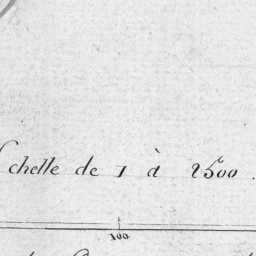 chelle de 1 à 2500.
100